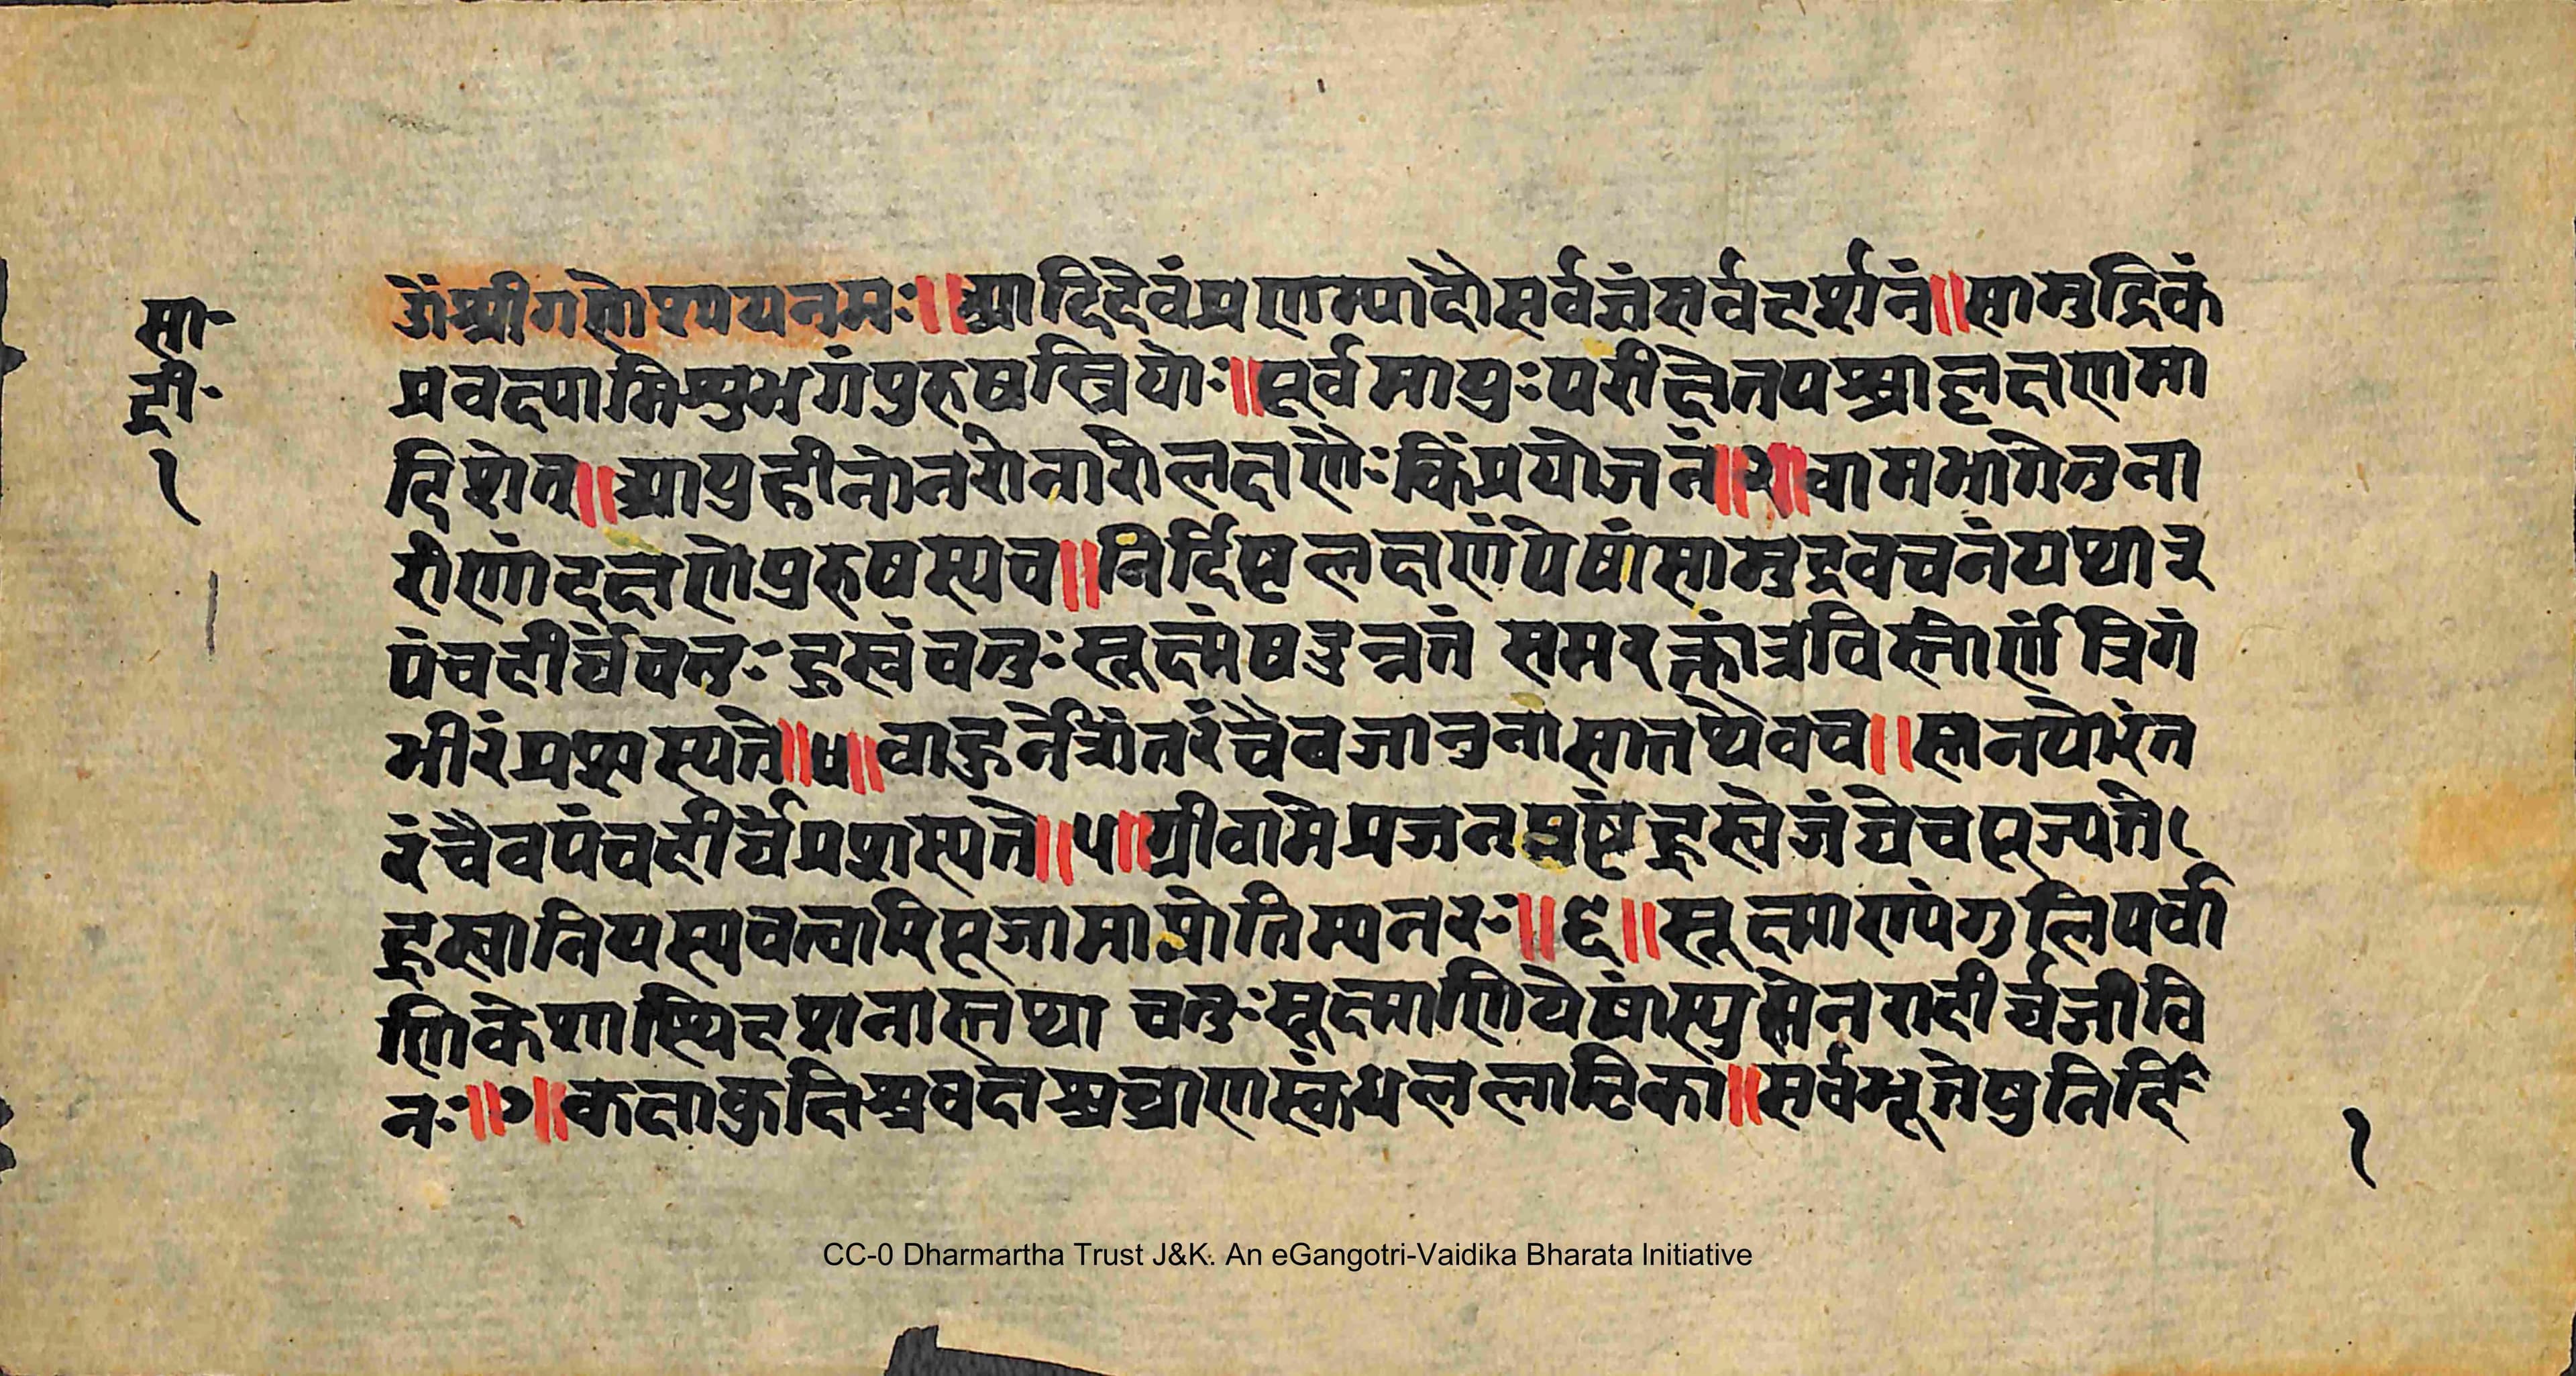 सा॰
द्री॰
१
ॐश्रीगणेशाययनमः॥आदिदेवंप्रणम्यादौसर्वज्ञंसर्वदर्शनं॥सामुद्रिकं
प्रवक्ष्यामिशुभगंपुरुषस्त्रियोः॥पूर्वमायुःपरीक्षेतपश्चाल्लक्षणमा
दिशेत्॥आयुहीनोनरोनारीलक्षणैःकिंप्रयोजनं॥२॥वामभागेतुना
रीणांदक्षिणेपुरुषस्यच॥निर्दिष्टलक्षणंयेषांसामुद्रवचनंयथा३
पंचदीर्घंचतुःह्रस्वंचतुःसूक्ष्मंषडुन्नतं सप्तरक्तांत्रविस्तीर्णंत्रिगं
भीरंप्रशस्यते॥४॥वाहुनेत्रांतरंचैवजानुनासातथैवच॥स्तनयोरंत
रंचैवपंचदीर्घंप्रशस्यते॥५॥ग्रीवामेप्रजनपृष्टंह्रस्वेजंघेचपूज्यते।
ह्रस्वानियस्यचत्वारिपूजामाप्नोतिम्पनरः॥६॥सूक्ष्माण्यंगुलिपर्वा
णिकेशास्थिदशनास्तथा चतुःसूक्ष्माणियेषांस्युस्तेनरादीर्घजीवि
नः॥७॥कक्षाकुक्षिश्चवक्षश्चघ्राणस्कंधललाटिका॥सर्वभूतेषुनिर्दि
१
CC-0 Dharmartha Trust J&K. An eGangotri-Vaidika Bharata Initiative